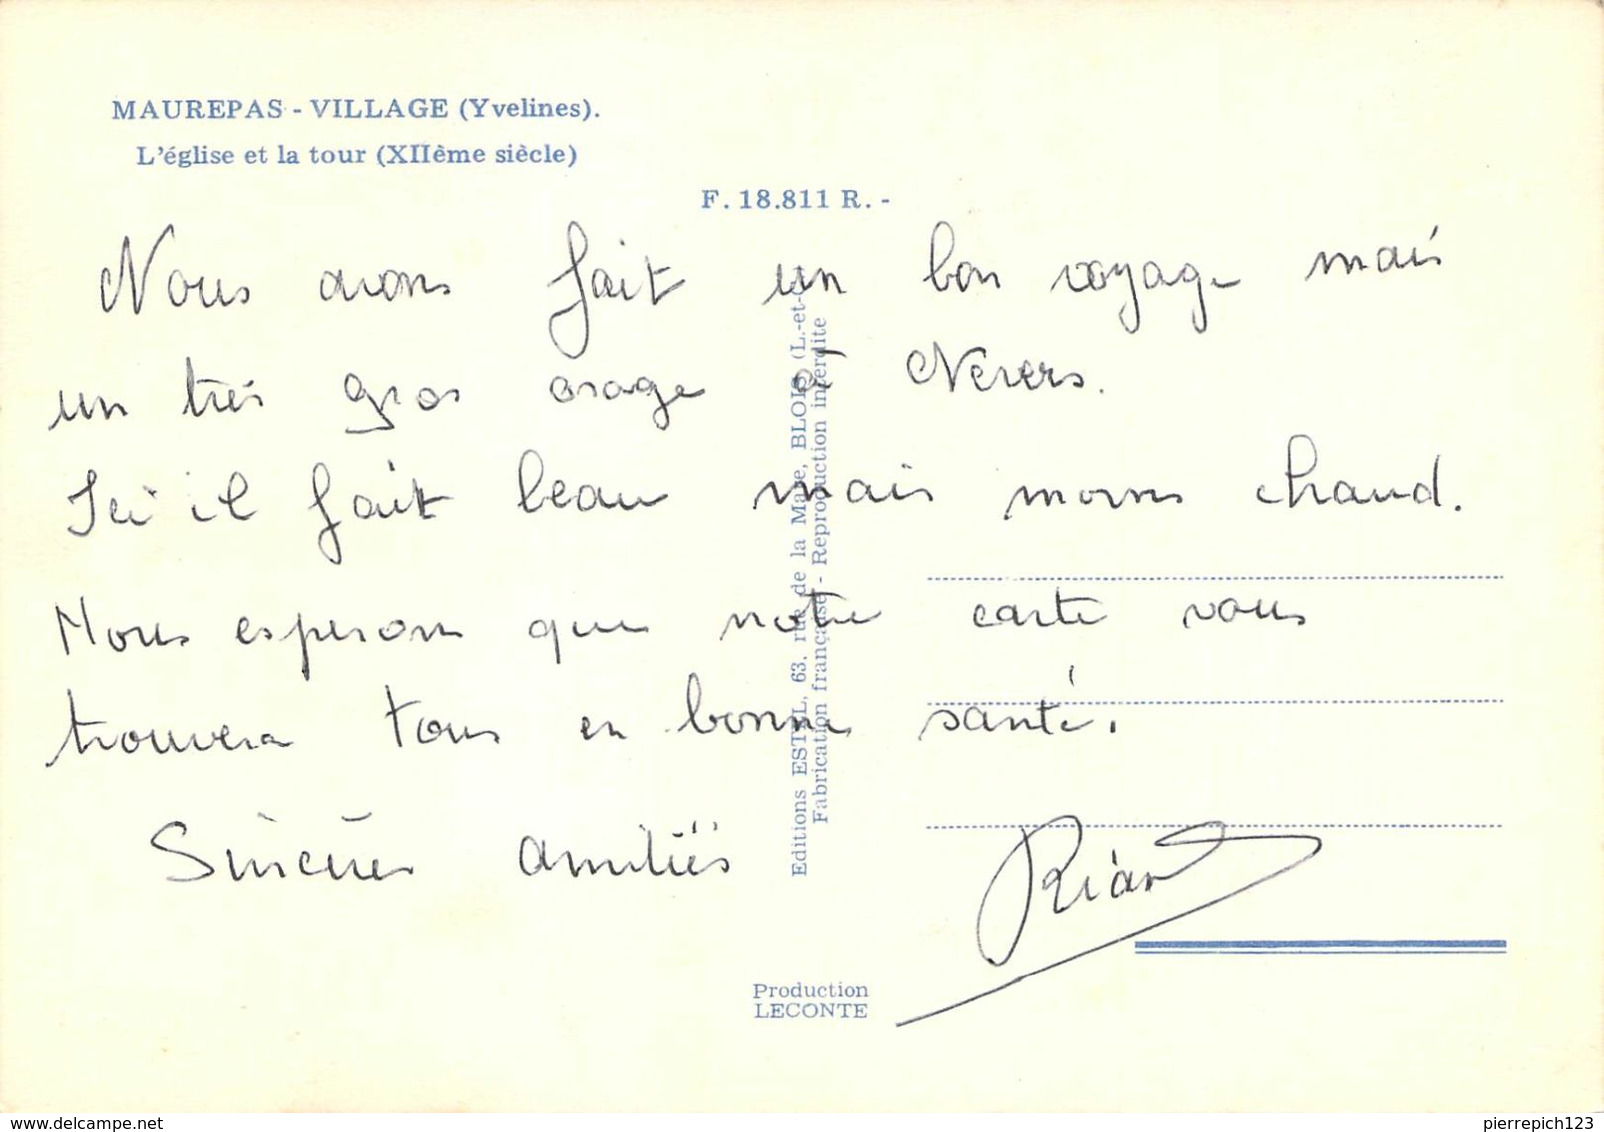 MAUREPAS - VILLAGE (Yvelines).
L'église et la tour (XIIème siècle)
F. 18.811 R. -
Nous avons fait un bon voyage mais
un très gros orage à Nevers.
Ici il fait beau mais moins chaud.
Nous esperons que notre carte vous
trouvera tous en bonne santé.
Sincères amitiés
Editions ESTEL, 63, rue de la Mare, BLOIS (L.-et-
Fabrication française - Reproduction interdite
Production
LECONTE
delcampe.net
pierrepich123